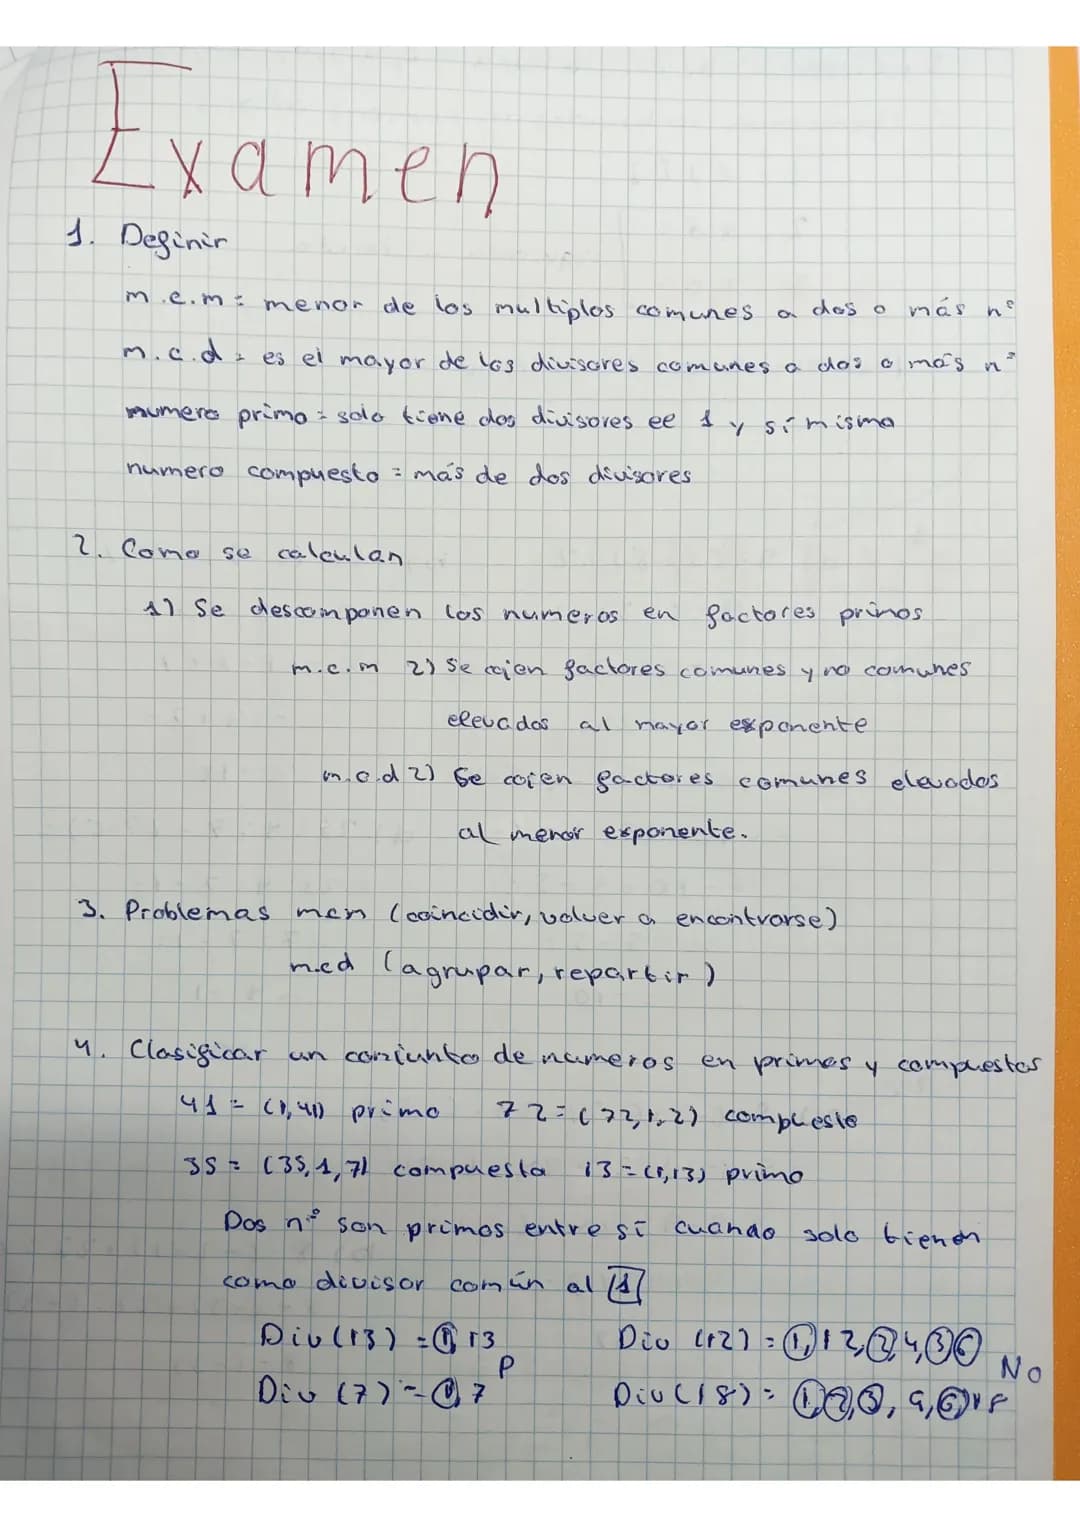 Examen
1. Definir
m.c.m = menor de los multiplos comunes a dos o más nº
m.c.d = es el mayor de los divisores comunes a dos o más nº
numero primo = solo tiene dos divisores ee 1 y sí mismo
numero compuesto = más de dos divisores
2. Como se calculan
1) Se descomponen los numeros en factores primos
m.c.m 2) Se cojen factores comunes y no comunes
elevados al mayor exponente
m.c.d 2) Se cojen factores comunes elevados
al menor exponente.
3. Problemas mcm (coincidir, volver a encontrarse)
m.cd (agrupar, repartir)
4. Clasificar un conjunto de numeros en primos y compuestos
41 = (1,41) primo 72 = (72,1,2) compuesto
35 = (35,1,7) compuesta 13 = (1,13) primo
Dos nº son primos entre sí cuando solo tienen
como divisor común al 1
Div (13) = 1, 13 Div (12) = 1, 12, 2, 4, 3, 6
P NO
Div (7) = 1, 7 Div (18) = 1, 2, 3, 9, 6, 18